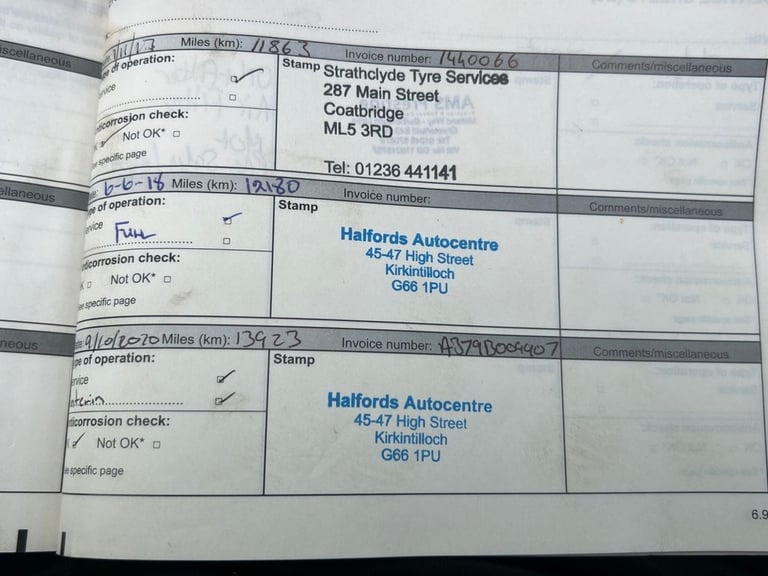 miscellaneous
Miles (km): 11863 Invoice number: 1440066 Comments/miscellaneous
e of operation:
Stamp Strathclyde Tyre Services
287 Main Street
Coatbridge
ML5 3RD
Tel: 01236 441141
vice
ticorrosjon check:
Not OK*
e specific page
ellaneous
6-6-18 Miles (km): 12180 Invoice number: Comments/miscellaneous
pe of operation:
Stamp
rvice
Full
Halfords Autocentre
45-47 High Street
Kirkintilloch
G66 1PU
nticorrosion check:
K Not OK*
ee specific page
neous
9/10/2020 Miles (km): 13923 Invoice number: A379B009907 Comments/miscellaneous
pe of operation:
Stamp
ervice
nterim
Halfords Autocentre
45-47 High Street
Kirkintilloch
G66 1PU
ticorrosion check:
Not OK*
e specific page
6.9